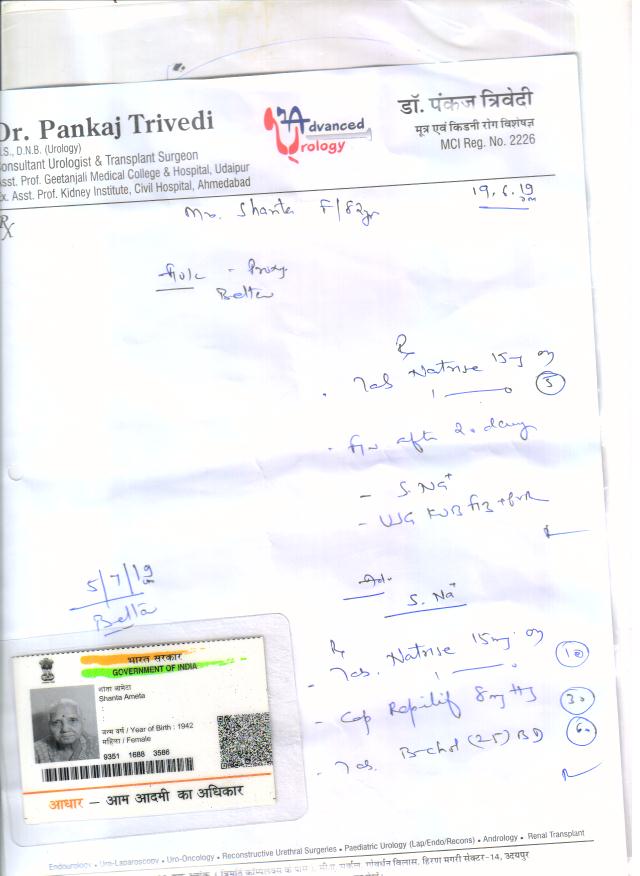 Dr. Pankaj Trivedi
M.S., D.N.B. (Urology)
Consultant Urologist & Transplant Surgeon
Asst. Prof. Geetanjali Medical College & Hospital, Udaipur
Ex. Asst. Prof. Kidney Institute, Civil Hospital, Ahmedabad
Advanced
Urology
डॉ. पंकज त्रिवेदी
मूत्र एवं किडनी रोग विशेषज्ञ
MCI Reg. No. 2226
19.6.19
Rx
Mrs. Shanta F/82yr
Better
Rx
Tab Natrise 15mg
1 0
5
after 20 days
- S. Na+
- USG KUB + PVR
5/7/19
Better
S. Na+
Rx
- Tab. Natrise 15mg
1 0
10
- Cap Rapilif 8mg HS
30
- Tab. B-chol (25) BD
60
भारत सरकार
GOVERNMENT OF INDIA
शांता आमेटा
Shanta Ameta
जन्म वर्ष / Year of Birth : 1942
महिला / Female
9351 1688 3586
आधार – आम आदमी का अधिकार
Endourology • Uro-Laparoscopy • Uro-Oncology • Reconstructive Urethral Surgeries • Paediatric Urology (Lap/Endo/Recons) • Andrology • Renal Transplant
हिरण मगरी सेक्टर-14, उदयपुर